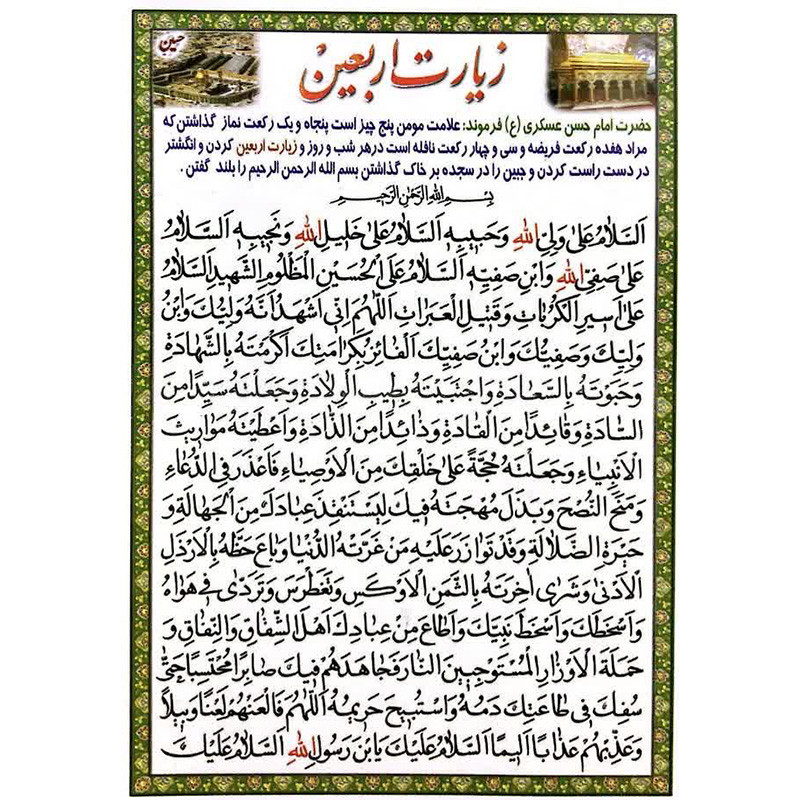 حسین
زیارت اربعین
حضرت امام حسن عسکری (ع) فرموند: علامت مومن پنج چیز است پنجاه و یک رکعت نماز گذاشتن که
مراد هفده رکعت فریضه و سی و چهار رکعت نافله است درهر شب و روز و زیارت اربعین کردن و انگشتر
در دست راست کردن و جبین را در سجده بر خاک گذاشتن بسم الله الرحمن الرحیم را بلند گفتن .
بِسْمِ اللهِ الرَّحْمٰنِ الرَّحیمِ
اَلسَّلامُ عَلیٰ وَلِیِّ اللهِ وَحَبیبِهِ اَلسَّلامُ عَلیٰ خَلیلِ اللهِ وَنَجیبِهِ اَلسَّلامُ
عَلیٰ صَفِیِّ اللهِ وَابْنِ صَفِیِّهِ اَلسَّلامُ عَلَی الْحُسَیْنِ الْمَظْلُومِ الشَّهیدِ اَلسَّلامُ
عَلیٰ اَسیرِ الْکُرُباتِ وَقَتیلِ الْعَبَراتِ اَللّٰهُمَّ اِنّی اَشْهَدُ اَنَّهُ وَلِیُّکَ وَابْنُ
وَلِیِّکَ وَصَفِیُّکَ وَابْنُ صَفِیِّکَ الْفائِزُ بِکَرامَتِکَ اَکْرَمْتَهُ بِالشَّهادَةِ
وَحَبَوْتَهُ بِالسَّعادَةِ وَاجْتَبَیْتَهُ بِطیبِ الْوِلادَةِ وَجَعَلْتَهُ سَیِّدًا مِنَ
السّادَةِ وَقائِدًا مِنَ الْقادَةِ وَذائِدًا مِنَ الذّادَةِ وَاَعْطَیْتَهُ مَواریثَ
الْاَنْبِیاءِ وَجَعَلْتَهُ حُجَّةً عَلیٰ خَلْقِکَ مِنَ الْاَوْصِیاءِ فَاَعْذَرَ فِی الدُّعاءِ
وَمَنَحَ النُّصْحَ وَبَذَلَ مُهْجَتَهُ فیکَ لِیَسْتَنْقِذَ عِبادَکَ مِنَ الْجَهالَةِ وَ
حَیْرَةِ الضَّلالَةِ وَقَدْ تَوازَرَ عَلَیْهِ مَنْ غَرَّتْهُ الدُّنْیا وَباعَ حَظَّهُ بِالْاَرْذَلِ
الْاَدْنیٰ وَشَریٰ اٰخِرَتَهُ بِالثَّمَنِ الْاَوْکَسِ وَتَغَطْرَسَ وَتَرَدّیٰ فی هَواهُ
وَاَسْخَطَکَ وَاَسْخَطَ نَبِیَّکَ وَاَطاعَ مِنْ عِبادِکَ اَهْلَ الشِّقاقِ وَالنِّفاقِ وَ
حَمَلَةَ الْاَوْزارِ الْمُسْتَوْجِبینَ النّارَ فَجاهَدَهُمْ فیکَ صابِرًا مُحْتَسِبًا حَتّیٰ
سُفِکَ فی طاعَتِکَ دَمُهُ وَاسْتُبیحَ حَریمُهُ اَللّٰهُمَّ فَالْعَنْهُمْ لَعْنًا وَبیلًا
وَعَذِّبْهُمْ عَذابًا اَلیمًا اَلسَّلامُ عَلَیْکَ یَابْنَ رَسُولِ اللهِ اَلسَّلامُ عَلَیْکَ